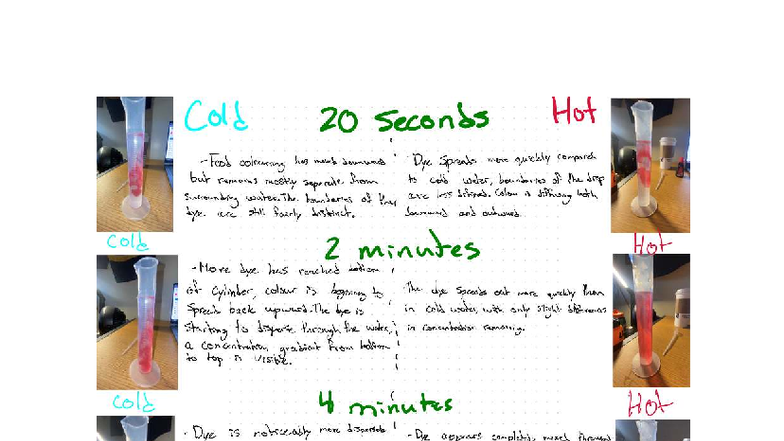 Cold
20 Seconds
Hot
- Food colouring has moved downward
but remains mostly separate from
surrounding water. The boundaries of the
dye are still fairly distinct.
Dye Spreads more quickly compared
to cold water, boundaries of the drop
are less defined. Colour is diffusing both
downward and outward.
Cold
2 minutes
Hot
- More dye has reached bottom
of cylinder, colour is beginning to
Spread back upward. The dye is
starting to disperse through the water,
a concentration gradient from bottom
to top is visible.
The dye spreads out more quickly than
in cold water, with only slight differences
in concentration remaining.
Cold
4 minutes
Hot
- Dye is noticeably more dispersed
- Dye appears completely mixed throughout